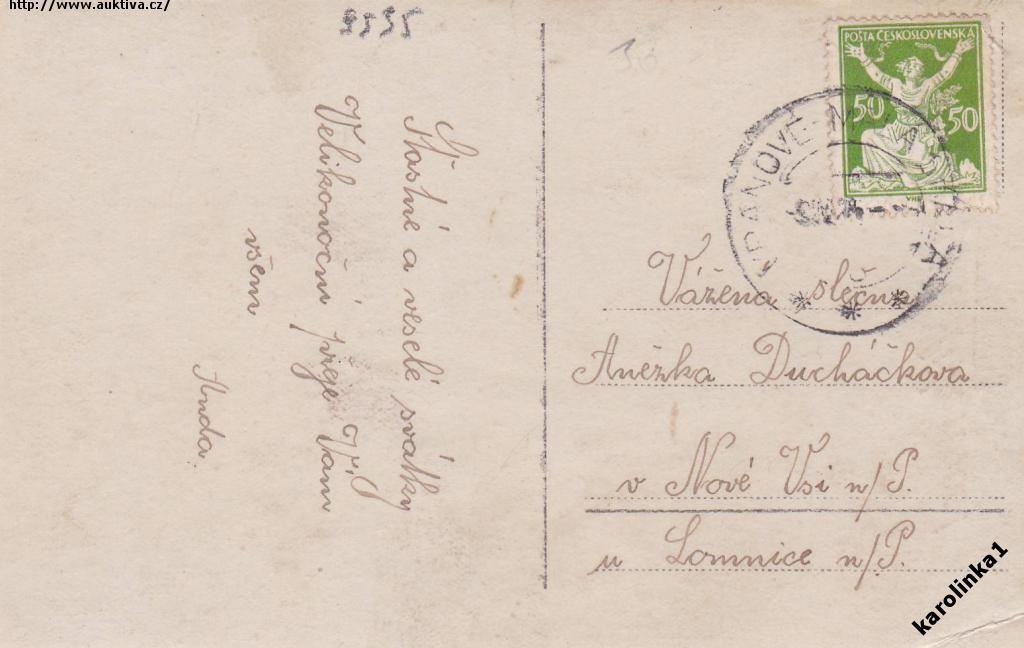 http://www.auktiva.cz/
Šťastné a veselé svátky
Velikonoční přeje Vám
všem
Anda.
POŠTA ČESKOSLOVENSKÁ
50 50
VRANOVÉ
Vážená slečna
Anežka Ducháčkova
v Nové Vsi n/P.
u Lomnice n/P.
karolinka1